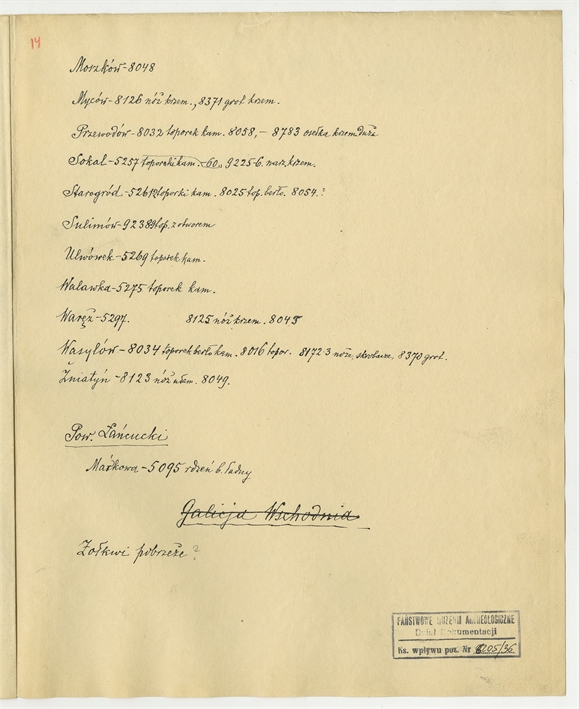 14
Moszków-8048
Myców-8126 nóż krzem., 8371 grot krzem.
Przewodów-8032 toporek kam. 8058,- 8783 osełka krzem duża
Sokal-5257 toporeki kam. -60., 9225-6. nasz. krzem.
Starogród-5261 toporki kam. 8025 top. berło. 8054.?
Sulimów-9238 top. z otworem
Ulwówek-5269 toporek kam.
Walawka-5275 toporek kam.
Waręż-5297. 8125 nóż krzem. 8045
Wasylów-8034 toporek berło kam. 8016 topor. 8172-3 noże, skrobacze, 8370 grot.
Żniatyń-8123 nóż ułam. 8049.
Pow. Łańcucki
Markowa-5095 rdzeń b. ładny
Galicja Wschodnia
Żołkwi pobrzeże?
PAŃSTWOWE MUZEUM ARCHEOLOGICZNE
Dział Dokumentacji
Ks. wpływu poz. Nr 8205/36